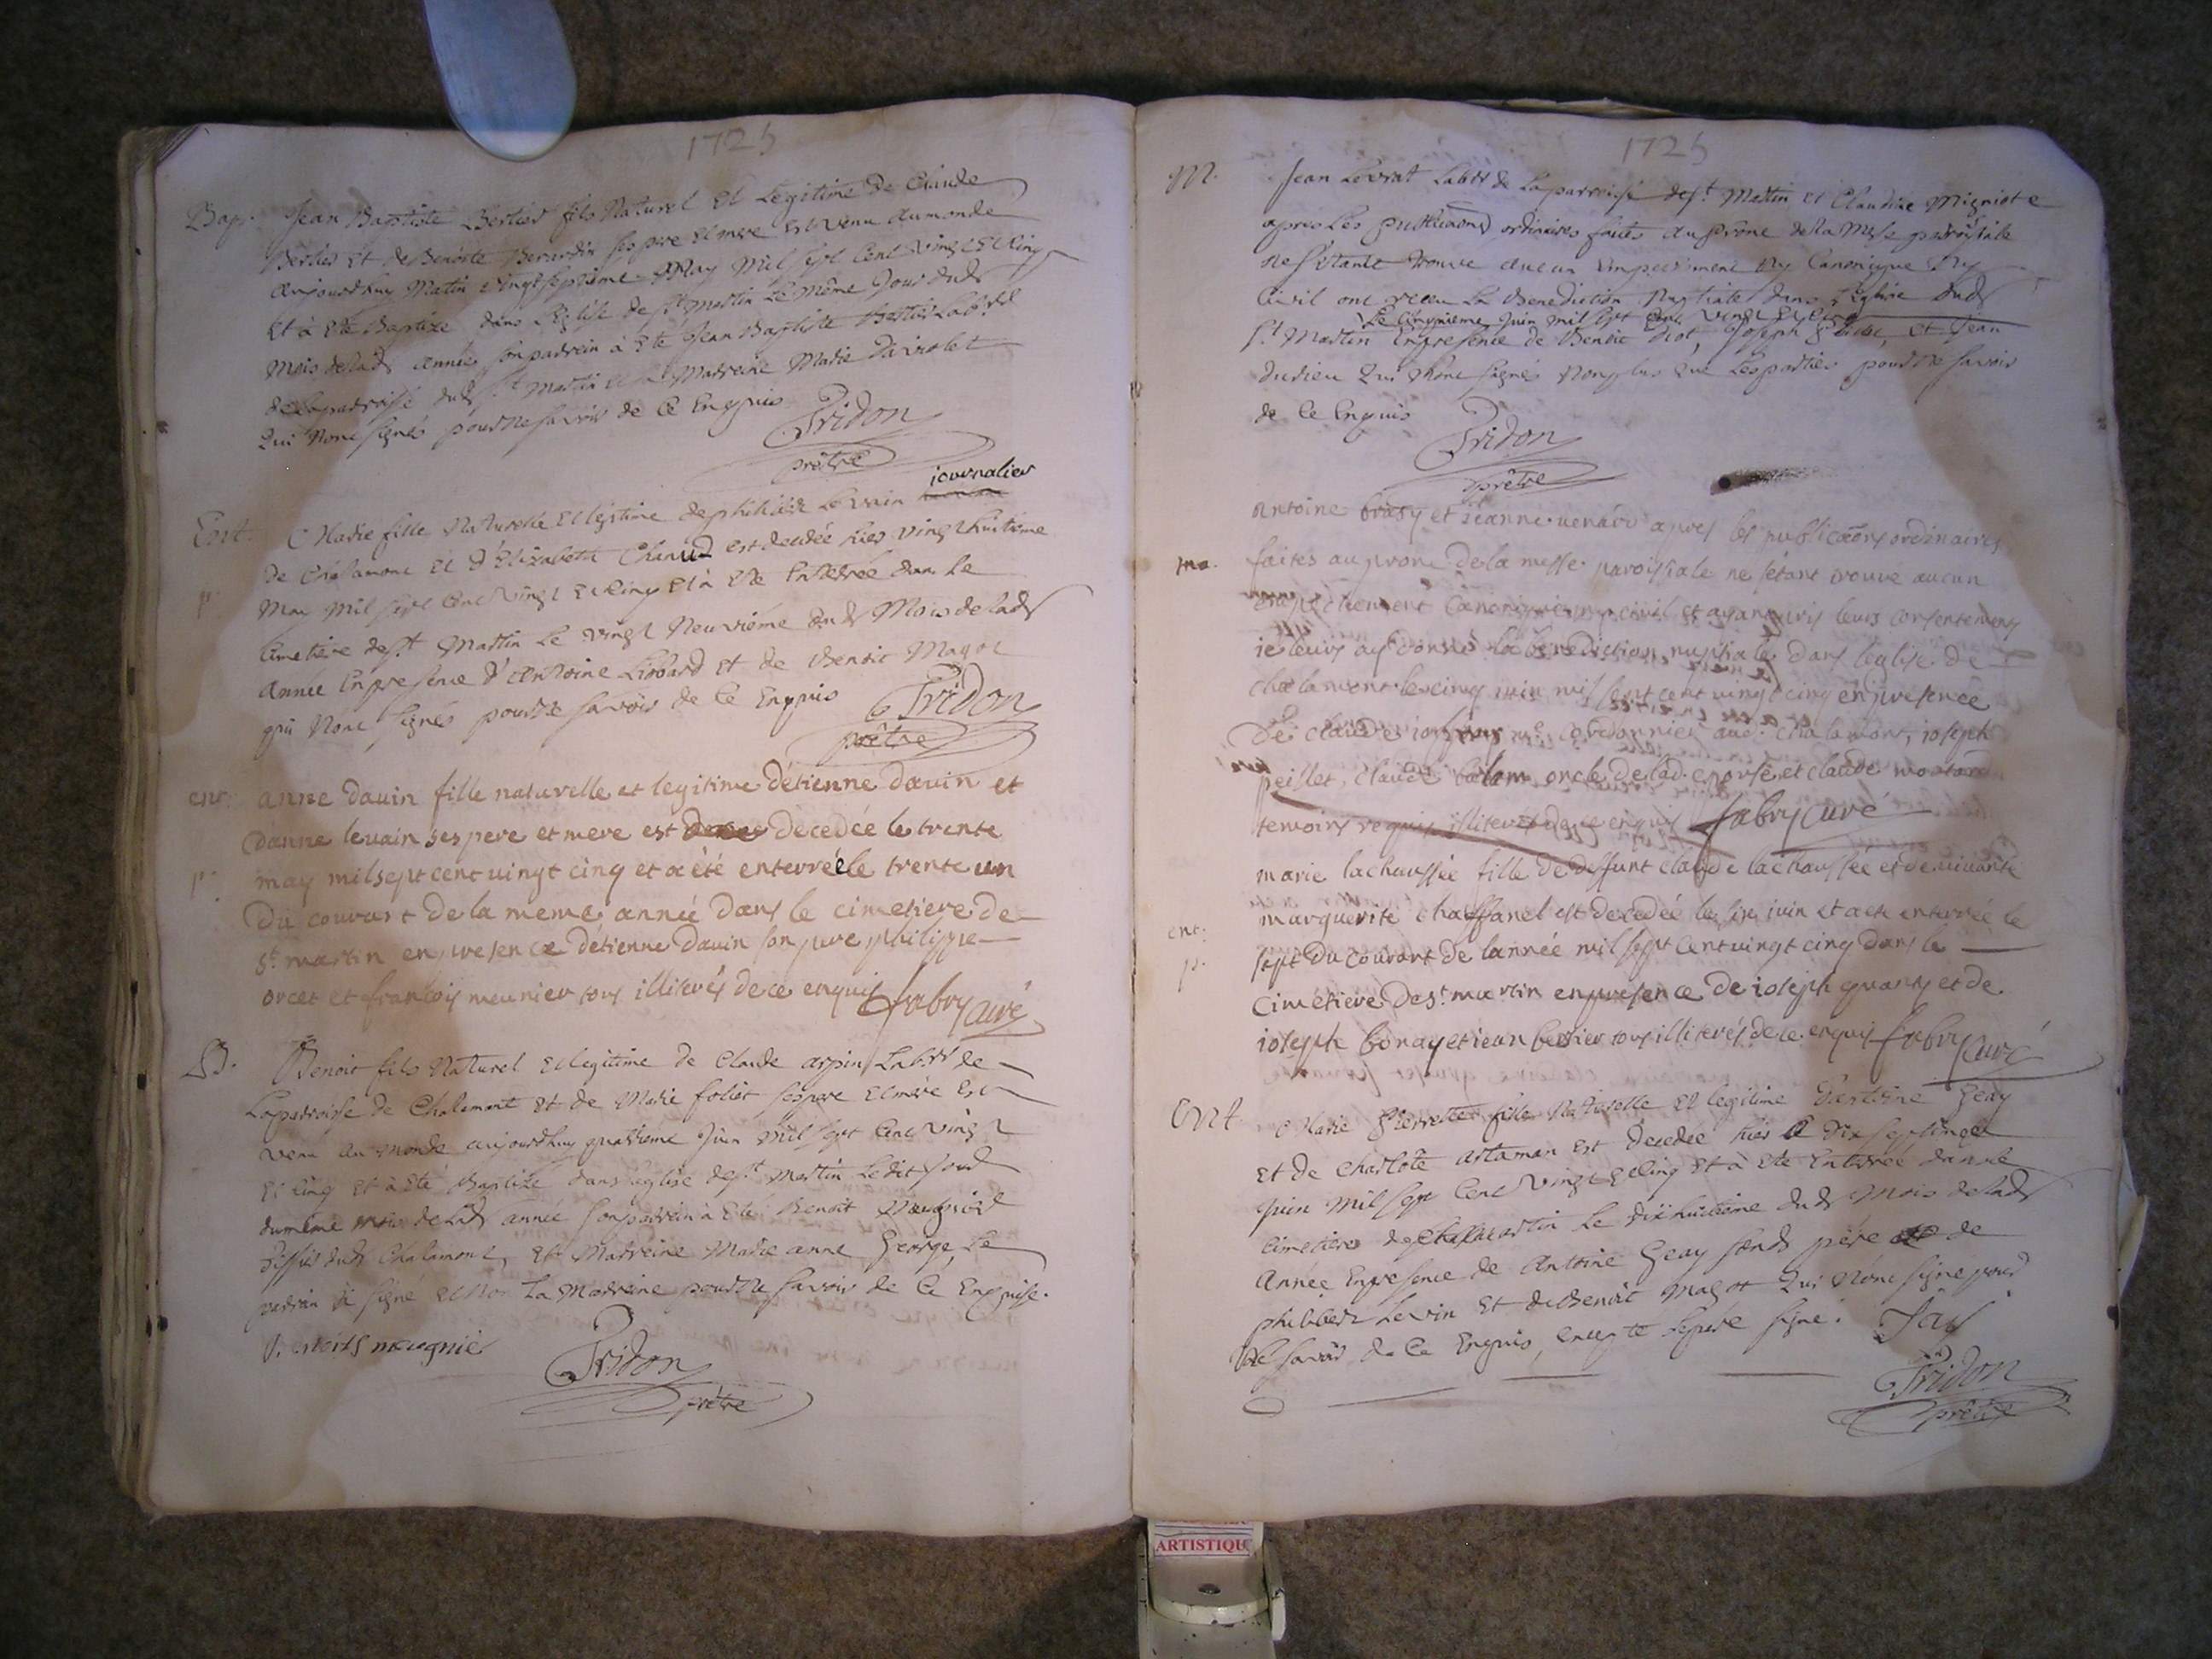 1725
Bap. Jean Baptiste Bertier fils Naturel Et Legitime De Claude
Bertier Et de Benoite Berardin ses pere Et mere Est venu au monde
aujourdhuy Matin vingt septiéme May Mil sept Cent vingt Et Cinq
Et à eté Baptizé dans l'Eglise de st martin Le même Jour dud
Mois de lad année son padrein à Eté Jean Baptiste Bertier Lab
de la parroisse dud st Martin et sa Marreine Marie
Qui n'ont signés pour ne savoir de Ce Enquis Pridon
prêtre
journalier
Ent. Marie fille Naturelle Et legitime de Levrin
de Chalamont Et d'Elizabeth Chanud est decedée hier vingt huitieme
May Mil sept Cent vingt Et Cinq Et à Eté Enterrée dans Le
p. Cimetiere de st Martin Le vingt Neuviéme dud Mois de lad
Année En presence d'Antoine Libbard Et de Benoit Magot
qui n'ont signés pour ne savoir de Ce Enquis Pridon
prêtre
ent: anne dauin fille naturelle et legitime d'etienne dauin et
d'anne leuain ses pere et mere est decedée le trente
p. may mil sept cent uingt cinq et a été enterrée le trente un
du courant de la meme année dans le cimetiere de
st martin en presence d'etienne dauin son pere philippe
orcet et françois meunier tous illiterés de ce enquis fabry curé
B. Benoit fils Naturel Et legitime de Claude arpin Lab de
La parroisse de Chalamont Et de Marie foliet ses pere Et mere Est
venu au monde aujourdhuy quatriéme Juin Mil sept Cent vingt
Et Cinq Et à Eté Baptizé dans l'eglise de st Martin Le dit Jour
du même mois de lad année son padrein à Eté Benoit
dud Chalamont, Et Marreine Marie anne George, Le
padrein à signé Et Non La Marreine pour ne savoir de Ce Enquise.
Pridon
prêtre
1725
M. Jean Levrat Lab de La parroisse de st Martin Et Claudine Migniote
apres Les publications ordinaires faites au Prône de La Messe parroissiale
ne s'etant trouvé aucun Empechement Ny Canonique Ny
Civil ont receu La Benediction Nuptiale dans L'Eglise dud
Le Cinquieme Juin mil sept Cent vingt Et Cinq
st Martin En presence de Benoit Joseph Et Jean
Qui n'ont signé Non plus que Les parties pour ne savoir
de Ce Enquis Pridon
prêtre
antoine brasy et jeanne uenard apres les publicaons ordinaires
ma. faites au prone de la messe paroissiale ne s'etant trouvé aucun
empechement canonique ny civil et ayant pris leurs consentemens
je leurs ay donné la benediction nuptiale dans l'eglise de
chalamont le cinq juin mil sept cent uingt cinq en presence
de claude cordonnier aud. chalamont, joseph
peillet, claude oncle de lad. epouse et claude
temoins requis illiterés de ce enquis fabry curé
marie lachaussée fille de deffunt claude lachaussée et de uiuante
ent: marguerite chaffanel est decedée le six juin et a eté enterrée le
p. sept du courant de l'année mil sept cent uingt cinq dans le
cimetiere de st martin en presence de joseph et de
joseph bonay et jean bertier tous illiterés de ce enquis fabry curé
Ent. Marie Pierrette fille Naturelle Et legitime D'antoine Geay
Et de Charlote artaman Est decedée hier Dix septiéme
Juin Mil sept Cent vingt Et Cinq Et à Eté Enterrée dans le
Cimetiere de Martin Le Dixhuitiéme dud Mois de lad
Année En presence de Antoine Geay sond père de
philibert Levrin Et de Benoit Magot Qui n'ont signé pour
Ne savoir de Ce Enquis, excepté Le pere signé. Jay
Pridon
prêtre
ARTISTIQU